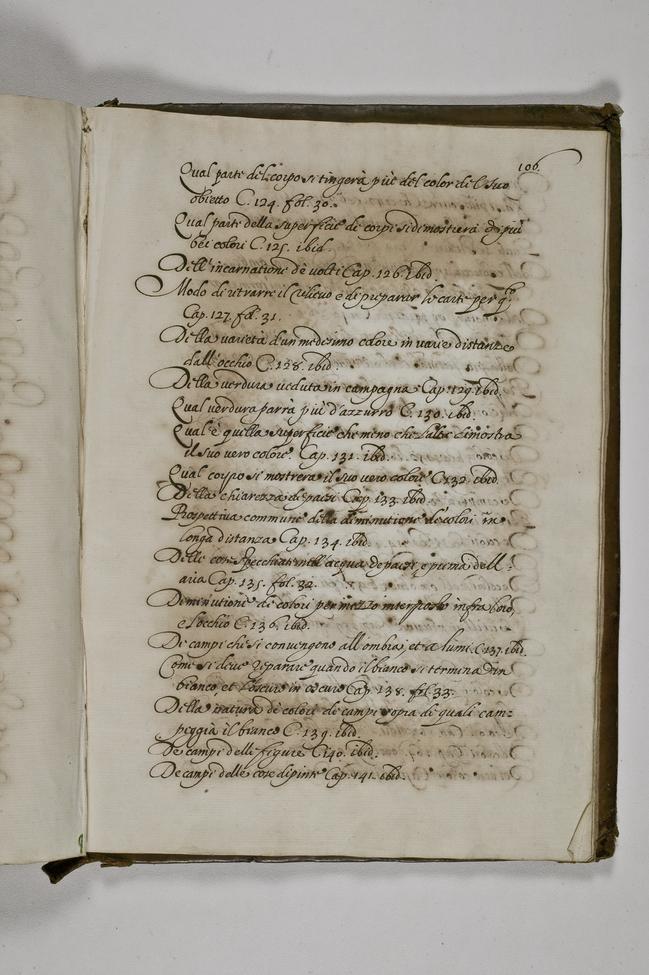 106.
Qual parte del corpo si tingerà più del color del suo
obietto C. 124. fol. 30.
Qual parte della superficie de corpi si dimostrerà di più
bei colori C. 125. ibid.
Dell'incarnatione de volti Cap. 126. ibid
Modo di ritrarre il rilievo e di preparar le carte per q.to
Cap. 127. fol. 31.
Della varietà d'un medesimo colore in varie distanze
dall'occhio C. 128. ibid.
Della verdura veduta in campagna Cap. 129. ibid.
Qual verdura parrà più d'azzurro C. 130. ibid.
Qual è quella superficie che meno che l'altre dimostra
il suo vero colore. Cap. 131. ibid.
Qual corpo si mostrerà il suo vero colore C. 132. ibid.
Della chiarezza de paesi Cap. 133. ibid.
Prospettiva commune della diminutione de colori in
longa distanza Cap. 134. ibid.
Delle cose specchiate nell'acqua de paesi, e prima dell'
aria Cap. 135. fol. 32.
Diminutione de colori per mezzo interposto infra loro,
e l'occhio C. 136. ibid.
De campi che si convengono all'ombra, et a lumi C. 137. ibid.
Come si deve riparare quando il bianco si termina in
bianco, et l'oscuro in oscuro Cap. 138. fol. 33.
Della natura de colori de campi sopra de quali cam=
peggia il bianco C. 139. ibid.
De campi delle figure C. 140. ibid.
De campi delle cose dipinte Cap. 141. ibid.